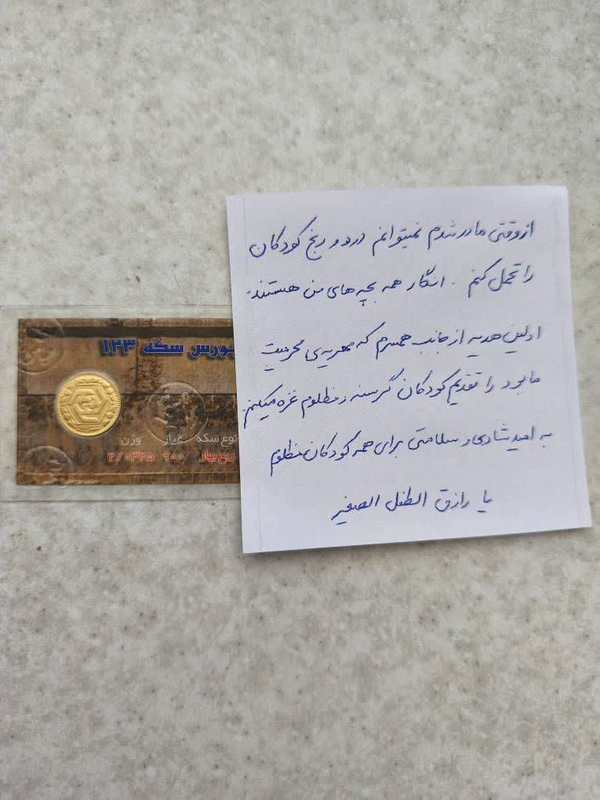 بورس سکه ۱۲۳
نوع سکه عیار وزن
ربع بهار ۹۰۰ ۲/۰۳۲۵
از وقتی مادر شدم نمیتوانم درد و رنج کودکان
را تحمل کنم . انگار همه بچه های من هستند.
اولین هدیه از جانب همسرم که مهریه‌ی محرمیت
ما بود را تقدیم کودکان گرسنه و مظلوم غزه میکنم
به امید شادی و سلامتی برای همه کودکان مظلوم
یا رازق الطفل الصغیر